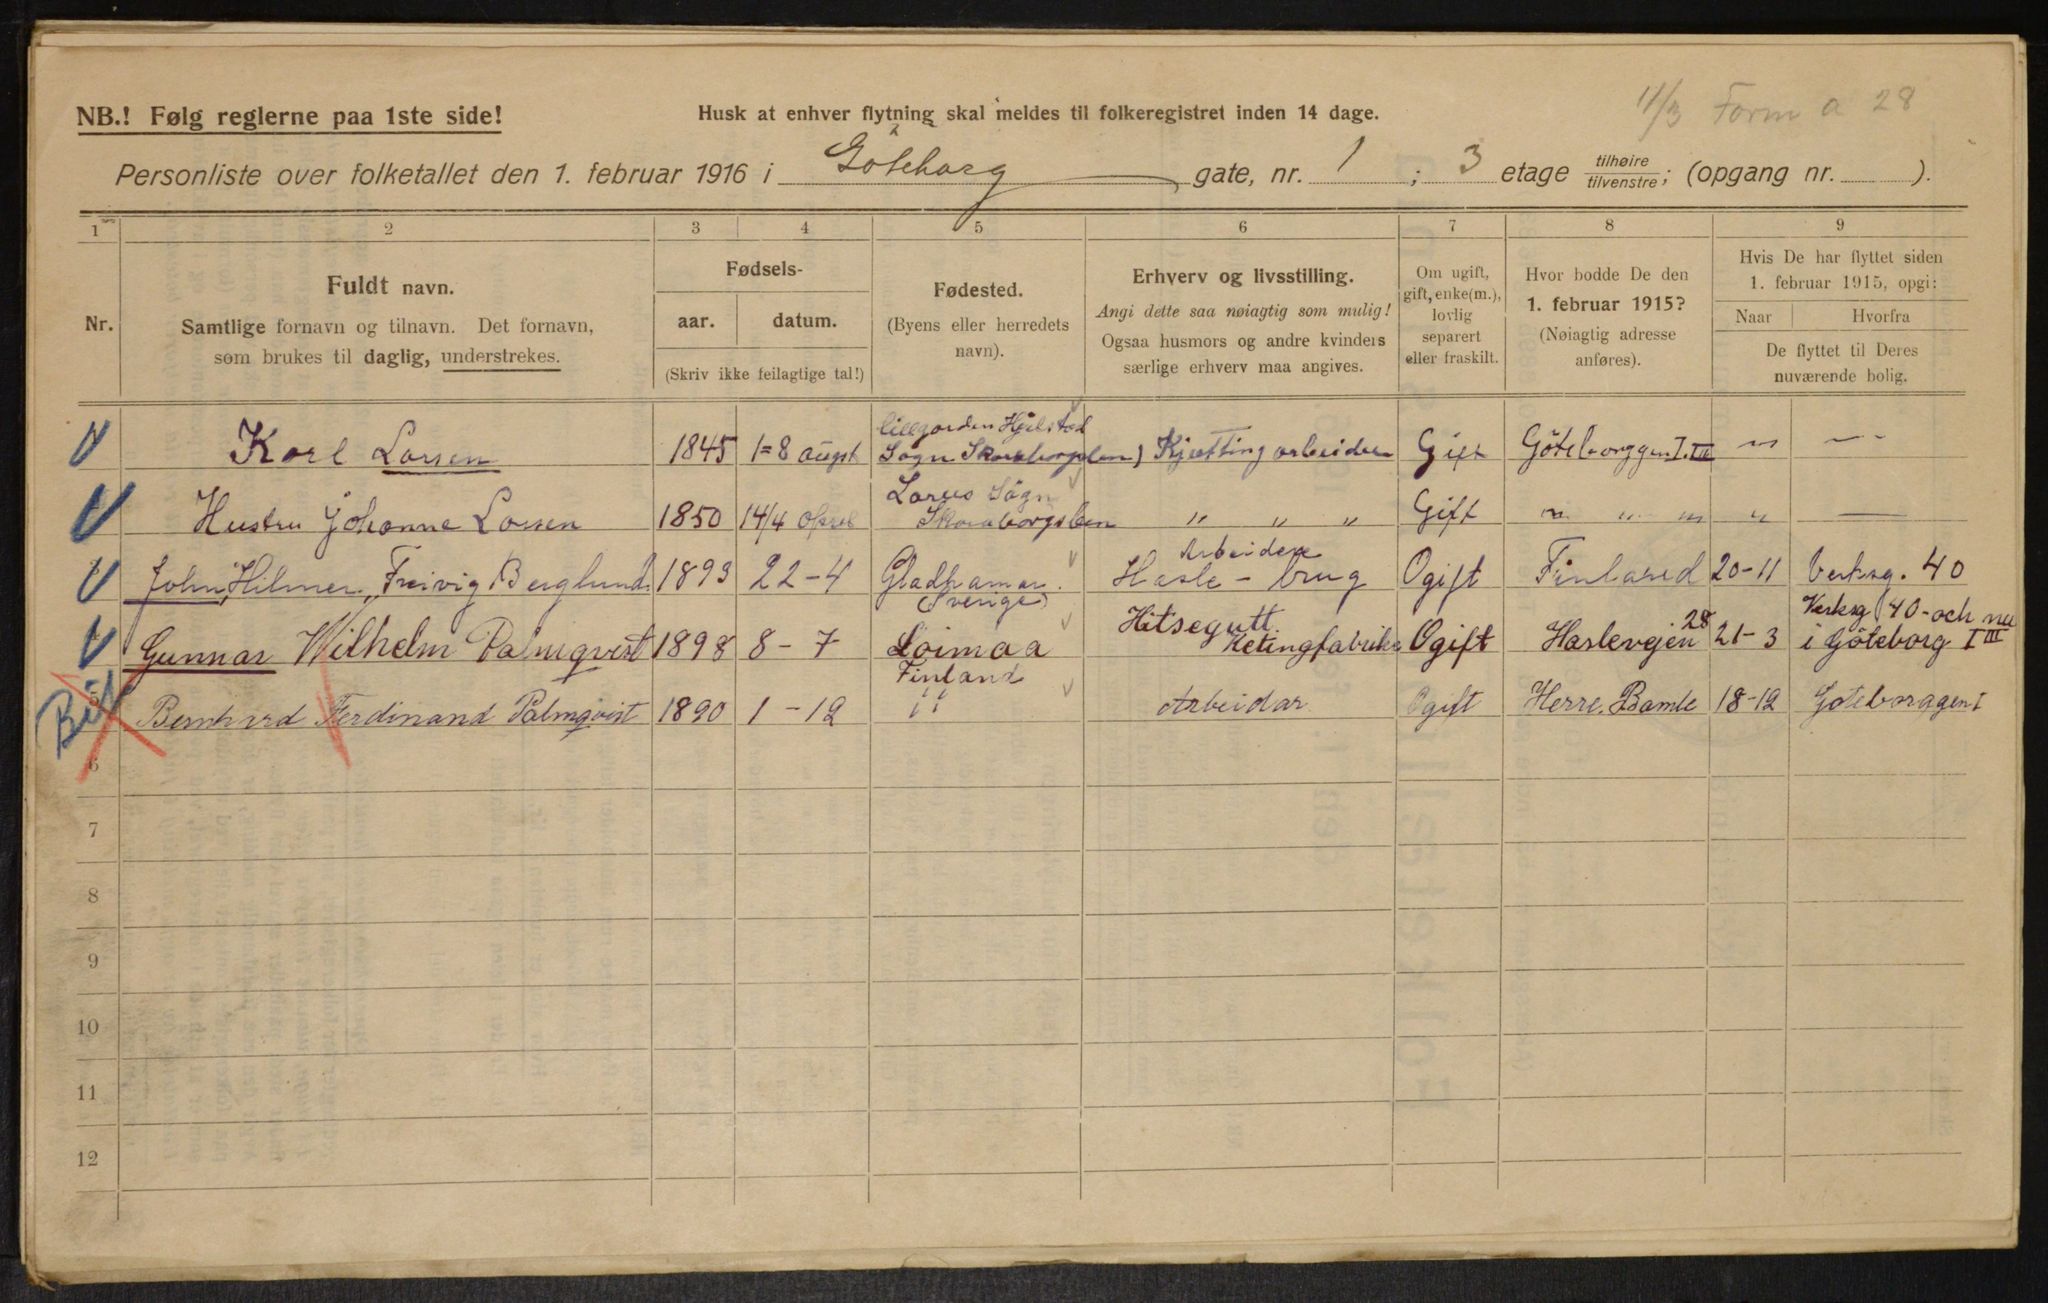 11/3 Form a 28
NB.! Følg reglerne paa 1ste side!
Husk at enhver flytning skal meldes til folkeregistret inden 14 dage.
Personliste over folketallet den 1. februar 1916 i Göteborg gate, nr. 1 ; 3 etage tilhøire/tilvenstre; (opgang nr. ).
1 2 3 4 5 6 7 8 9
Nr.
Fuldt navn.
Samtlige fornavn og tilnavn. Det fornavn,
som brukes til daglig, understrekes.
Fødsels-
aar. datum.
(Skriv ikke feilagtige tal!)
Fødested.
(Byens eller herredets
navn).
Erhverv og livsstilling.
Angi dette saa nøiagtig som mulig!
Ogsaa husmors og andre kvinders
særlige erhverv maa angives.
Om ugift,
gift, enke(m.),
lovlig
separert
eller fraskilt.
Hvor bodde De den
1. februar 1915?
(Nøiagtig adresse
anføres).
Hvis De har flyttet siden
1. februar 1915, opgi:
Naar Hvorfra
De flyttet til Deres
nuværende bolig.
Karl Larsen 1845 1=8 augst Lillgorden Hjelstad Sogn Skaraborgslen) Kjetting arbeider Gift Göteborggen I. III " — "
Hustru Johanne Larsen 1850 14/4 april Sögn Skaraborgslen " " " Gift " " " " —
John, Hilmer, Freivig Berglund 1893 22-4 Gladhamar. (Sverige) Arbeidere Hasle-brug Ogift Finland 20-11 Verksg. 40
Gunnar Wilhelm Palmqvist 1898 8-7 Loimaa Finland Hitsegutt Ketingfabrike Ogift Haslevejen 28 21-3 Verksg 40-och nu i Göteborg I III
5 Bernhard Ferdinand Palmqvist 1890 1-12 " Arbeidar Ogift Herre. Bamle 18-12 Goteborggen I
6
7
8
9
10
11
12